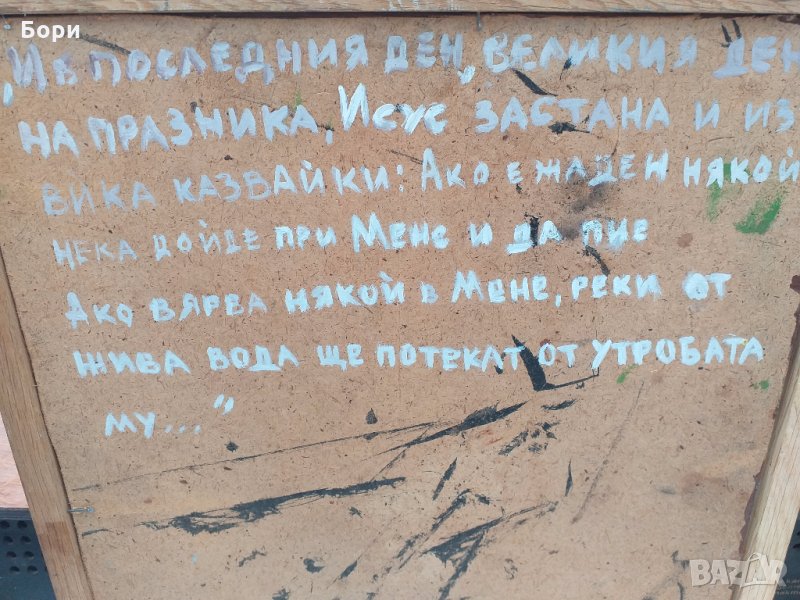 Бори
„И в последния ден, великия ден
на празника, Исус застана и из
вика казвайки: Ако е жаден някой
нека дойде при Мене и да пие
Ако вярва някой в Мене, реки от
жива вода ще потекат от утробата
му..."
BAZAR